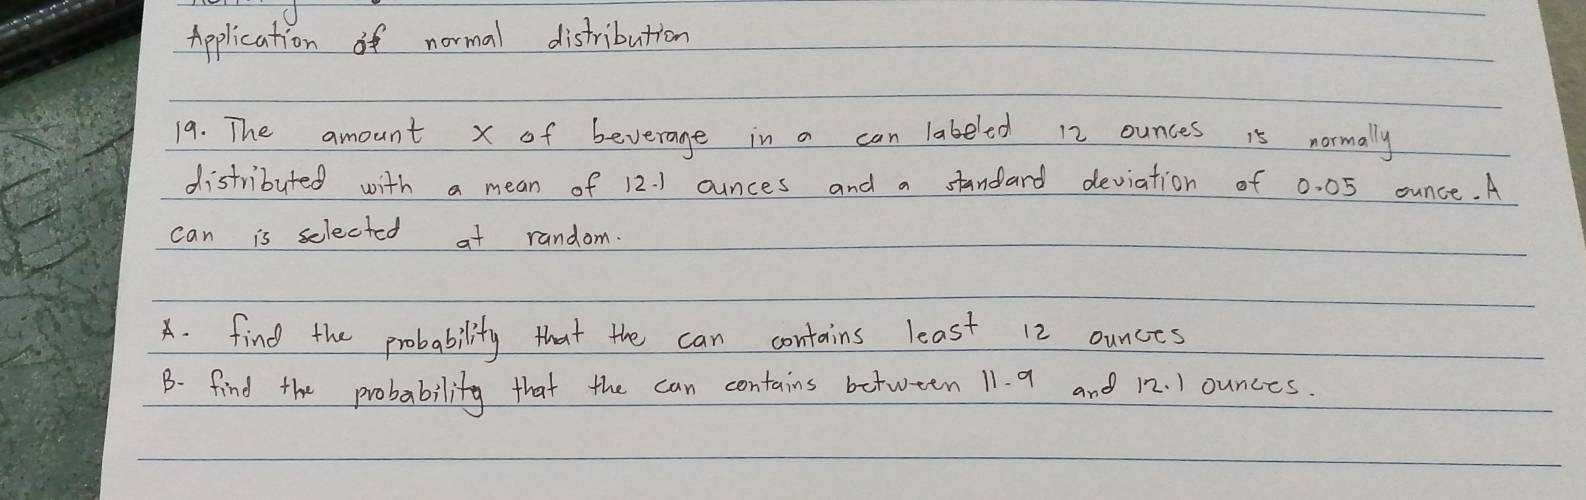 Application of normal distribution
19. The amount x of beverage in a can labeled 12 ounces is normally
distributed with a mean of 12.1 ounces and a standard deviation of 0.05 ounce. A
can is selected at random.
A. find the probability that the can contains least 12 ounces
B. find the probability that the can contains between 11.9 and 12.1 ounces.